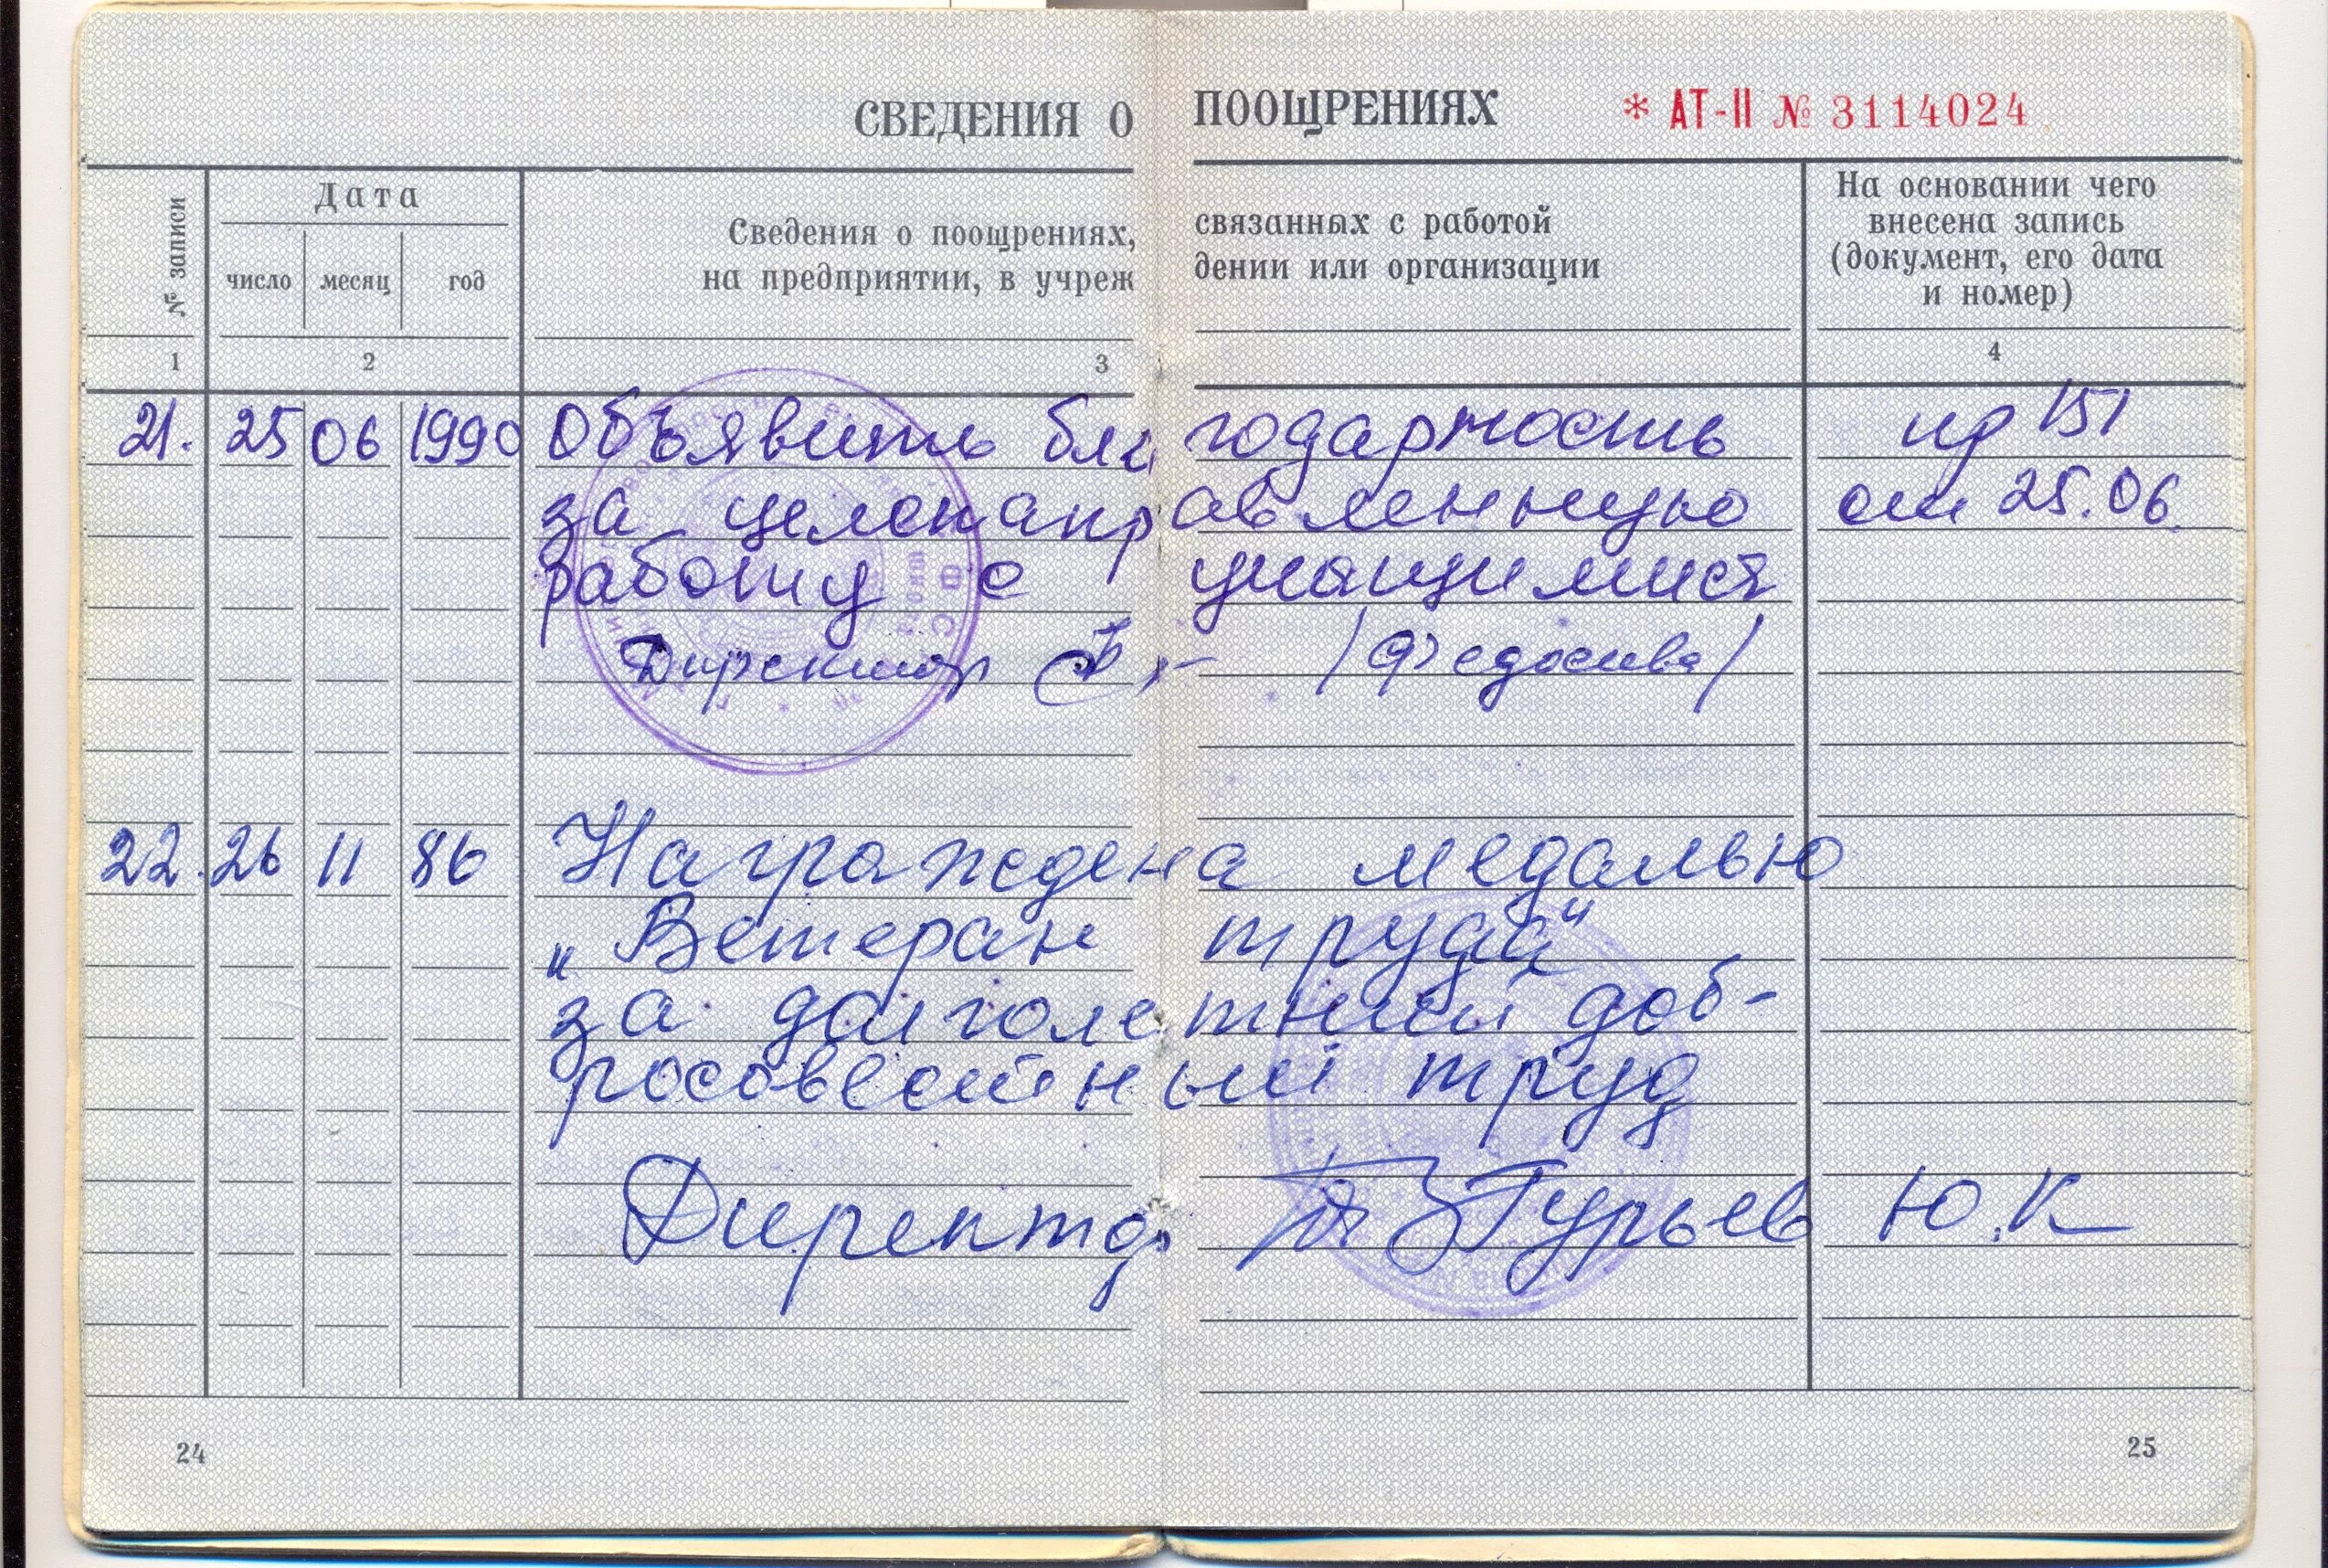 СВЕДЕНИЯ О ПООЩРЕНИЯХ * АТ-II № 3114024
№ записи
Дата
число месяц год
Сведения о поощрениях, связанных с работой
на предприятии, в учреж дении или организации
На основании чего
внесена запись
(документ, его дата
и номер)
1 2 3 4
21. 25 06 1990 Объявить благодарность пр 151
за целенаправленную от 25.06.
работу с учащимися
Директор /Федосеева/
22. 26 11 86 Награждена медалью
„Ветеран труда“
за долголетний доб-
росовестный труд
Директор Гурьев Ю.К
24 25